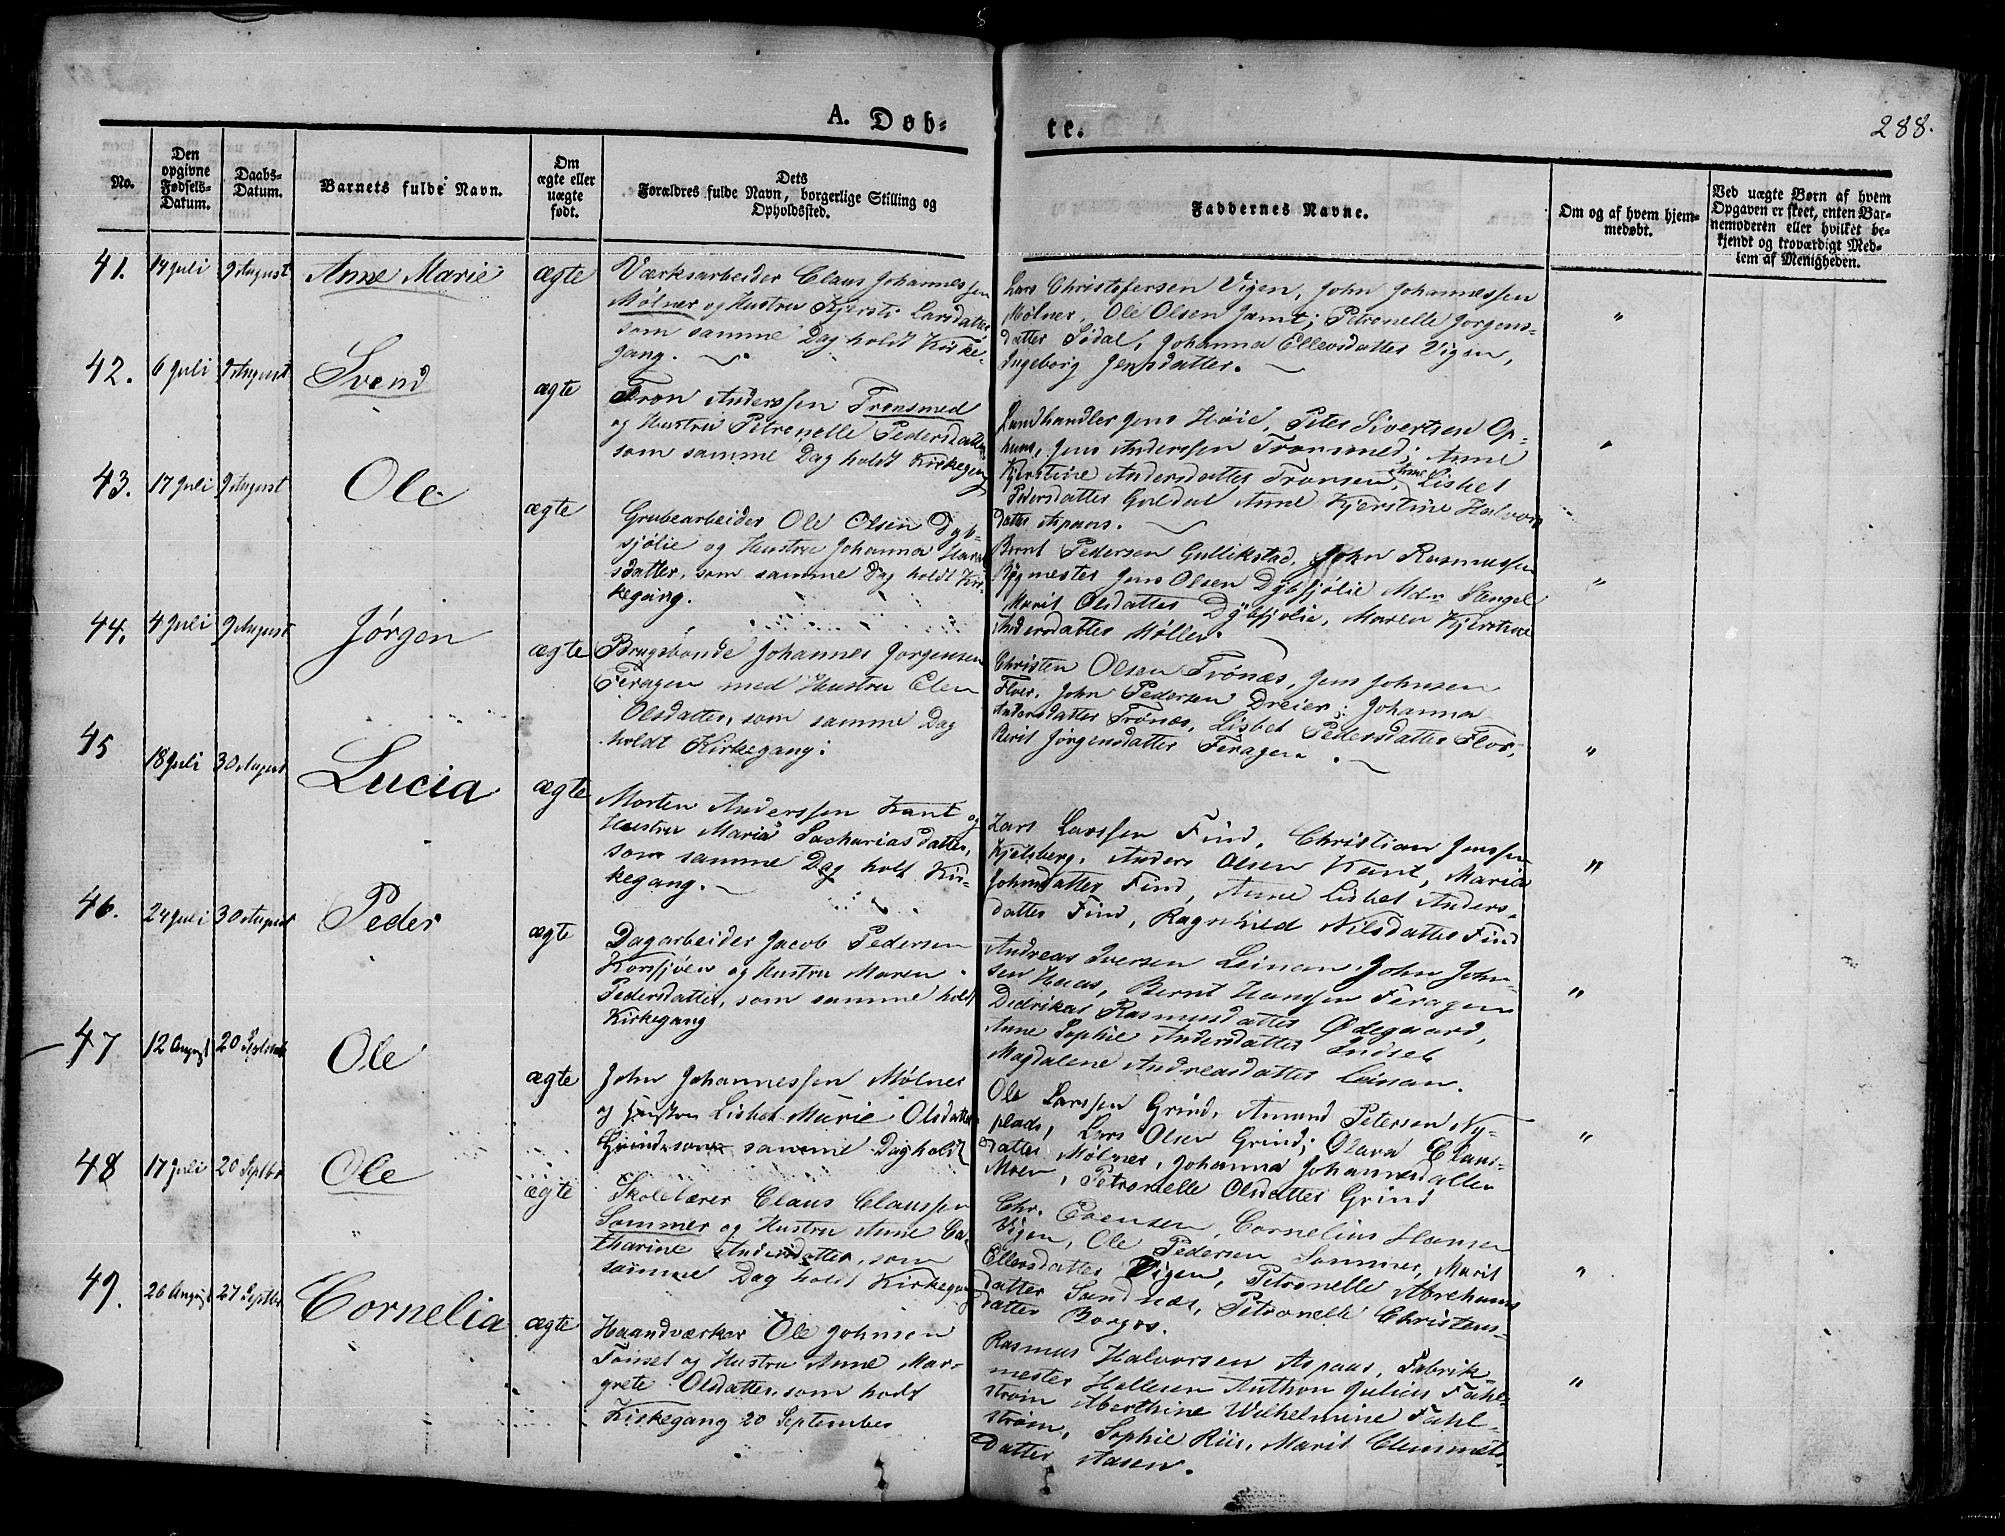 A. Døb-
te.
288.
No.
Den opgivne Fødsels-Datum.
Daabs-Datum.
Barnets fulde Navn.
Om ægte eller uægte født.
Dets Forældres fulde Navn, borgerlige Stilling og Opholdssted.
Faddernes Navne.
Om og af hvem hjemmedøbt.
Ved uægte Børn af hvem Opgaven er skeet, enten Barnemoderen eller hvilket bekjendt og troværdigt Medlem af Menigheden.
41. 14 Juli 9 August Anne Marie ægte
Værksarbeider Claus Johannessen
Mølner og Hustru Kjersti Larsdatter
som samme Dag holdt Kirke-
gang.
Lars Christofersen Vigen, John Johannessen
Mølner, Ole Olsen Jamt; Petronelle Jørgens-
datter Sødal, Johanna Ellevsdatter Vigen,
Ingeborg Jensdatter.
"
42. 6 Juli 9 August Svend ægte
Tron Anderssen Tronsmed
og Hustru Petronelle Pedersdatter
som samme Dag holdt Kirkegang
Landhandler Jens Høie, Peter Sivertsen Op-
huus, Jens Anderssen Tronsmed; Anne
Kjerstine Andersdatter Tronsen, Anne Lisbet
Pedersdatter Guldal Anne Kjerstine Halvors
datter Aspaas.
"
43. 17 Juli 9 August Ole ægte
Grubearbeider Ole Olsen Dyb-
sjølie og Hustru Johanna
datter, som samme Dag holdt Kir-
kegang.
Bernt Pedersen Gullikstad, John Rasmussen
Bygmester Jens Olsen Dybsjølie Mdm Stengel
Marit Olsdatter Dybsjølie, Maren Kjerstine
Andersdatter Møller.
"
44. 4 Juli 9 August Jørgen ægte
Brugsbonde Johannes Jørgensen
Feragen med Hustru Elen
Olsdatter, som samme Dag
holdt Kirkegang.
Christen Olsen Trønæs, Jens Johnsen
Floer, John Pedersen Dreier; Johanna
Andersdatter Trønæs, Lisbet Pedersdatter Floer,
Berit Jørgensdatter Feragen.
"
45 18 Juli 30 August Lucia ægte
Morten Anderssen Kant og
Hustru Maria Sachariasdatter,
som samme Dag holt Kir-
kegang.
Lars Larssen Find, Christian Jenssen
Kjelsberg, Anders Olsen Kant, Maria
Johnsdatter Find, Anne Lisbet Anders-
datter Find, Ragnhild Nilsdatter Find
"
46. 24 Juli 30 August Peder ægte
Dagarbeider Jacob Pedersen
Korssjøen og Hustru Maren
Pedersdatter, som samme holdt
Kirkegang
Andreas Iversen Leinan, John John-
sen Haas, Bernt Hansen Feragen
Dedrikas Rasmusdatter Ødegaard,
Anne Sophie Andersdatter Indset
Magdalene Andreasdatter Leinan.
"
47 12 August 20 Septemb Ole ægte
John Johannessen Mølner
og Hustru Lisbet Marie Olsdatter
Grind, som samme Dag holdt
Ole Larssen Grind, Amund Petersen Ny-
plads, Lars Olsen Grind; Olava Claus-
datter Mølner, Johanna Johannesdatter
Moen, Petronelle Olsdatter Grind
"
48 17 Juli 20 Septbr Ole ægte
Skolelærer Claus Claussen
Sommer og Hustru Anne Ca-
tharine Andersdatter, som
samme Dag holdt Kirkegang
Chr. Evensen, Cornelius Hansen
Vigen, Ole Pedersen Sommer, Marit
Ellersdatter Vigen, Petronelle Abrehams
datter Sandnæs, Petronelle Christens-
datter Borgos.
"
49. 26 August 27 Septbr Cornelia ægte
Haandværker Ole Johnsen
Tønset og Hustru Anne Mar-
grete Olsdatter, som holdt
Kirkegang 20 September
Rasmus Halvorsen Aspaas, Fabrik-
mester Hellesen Anthon Julius Fahl-
strøm Aberthine Wilhelmine Fahl-
strøm, Sophie Riis, Marit Clemmets-
datter Aasen.
"